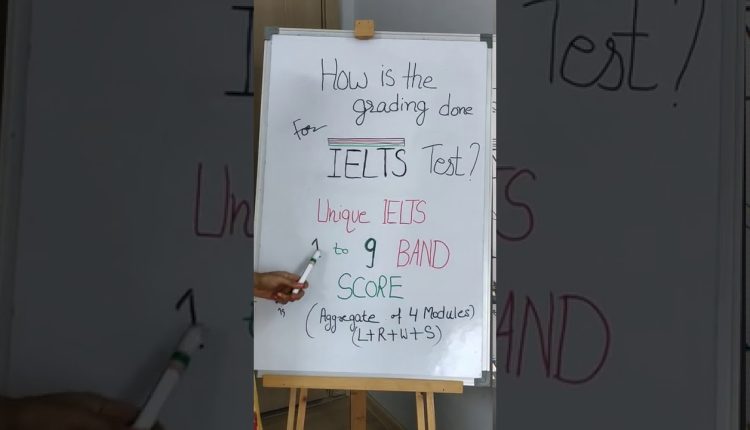 How is the
grading done
For
IELTS Test?
Unique IELTS
1 to 9 BAND
SCORE
(Aggregate of 4 Modules)
(L+R+W+S)